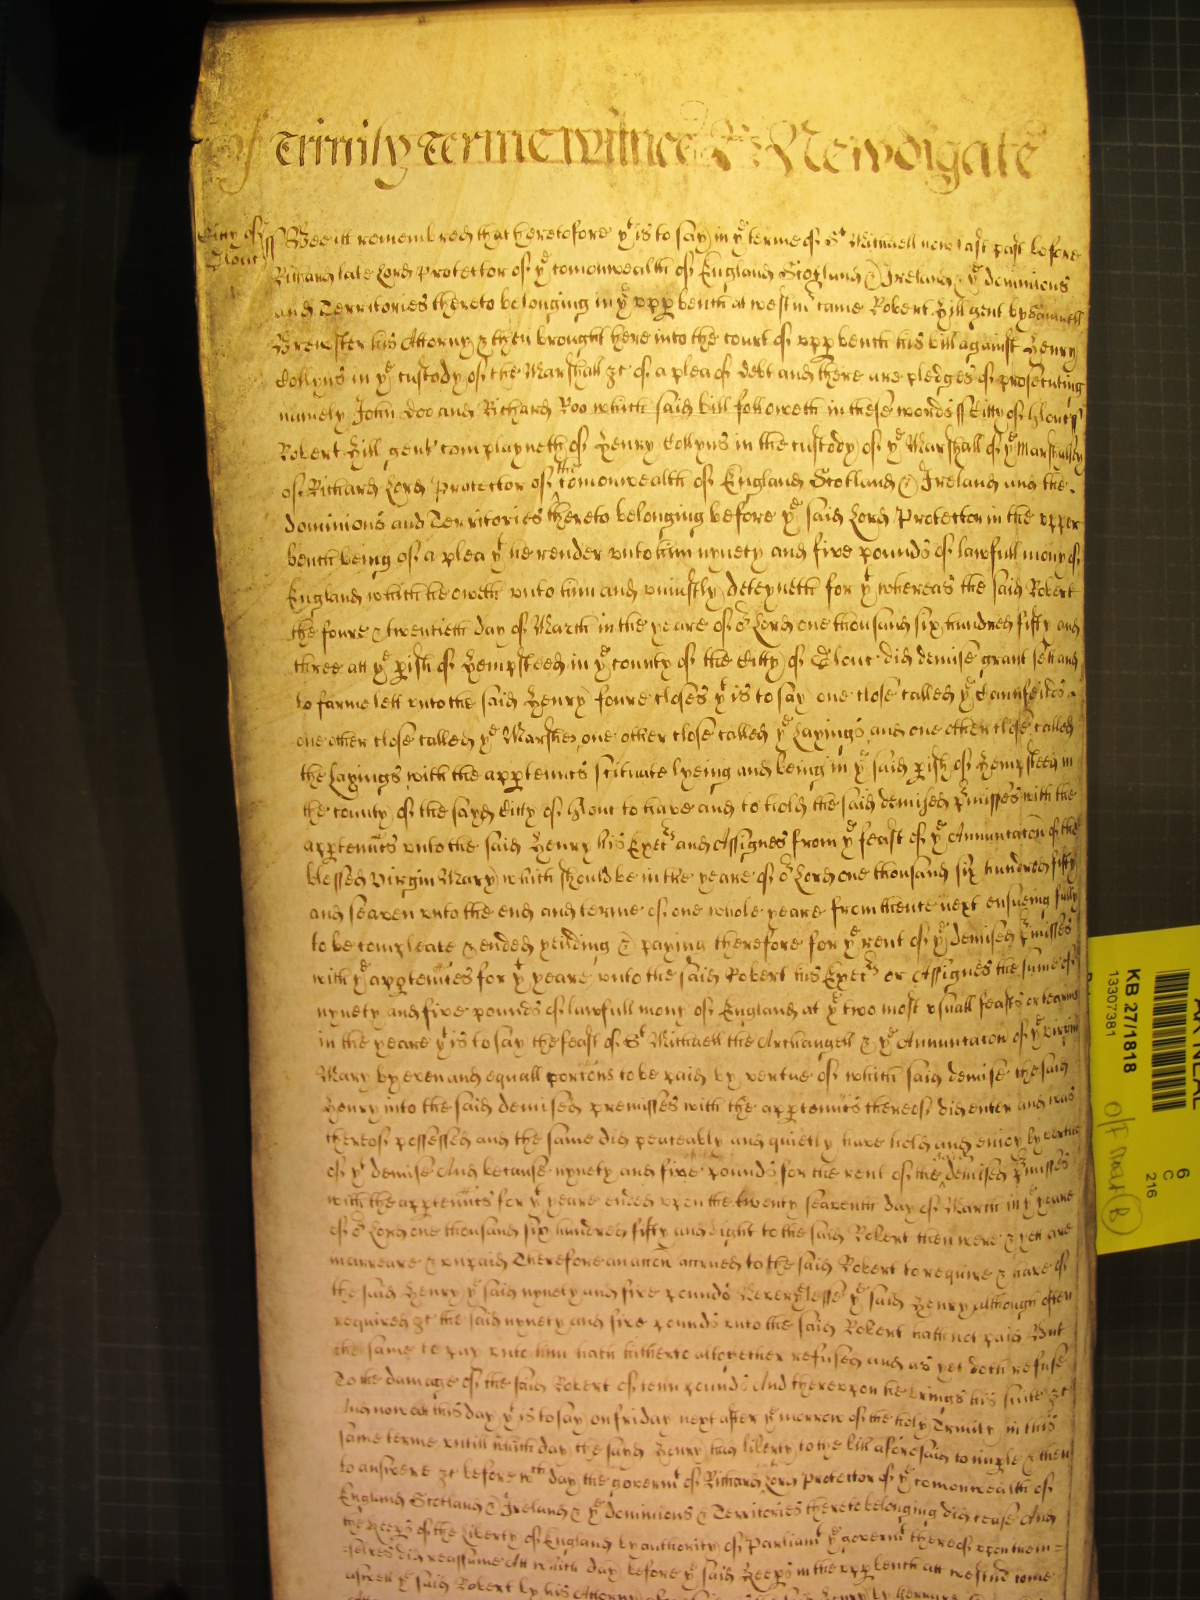 Of Trinity Terme witnes R: Newdigate
Citty of
Glouc ss
Bee itt remembred that heretofore yt is to say in ye terme of St Michaell now last past before
Richard late Lord Protector of ye comonwealth of England Scotland & Ireland & ye dominions
and Territories thereto belonging in ye upp bench at westm came Robert Hill gent by Samuell
Brewster his Attorny & then brought here into the court of upp bench his bill against Henry
Collyns in ye custody of the Marshall &c of a plea of debt and there are pledges of prosecuting
namely John Doo and Richard Roo which said bill followeth in these words ss Citty of Glouc ss
Robert Hill gent complayneth of Henry Collyns in the custody of ye Marshall of ye Marshalsey
of Richard Lord Protector of the comonwealth of England Scotland & Ireland and the
dominions and Territories thereto belonging before ye said Lord Protector in the upper
bench being of a plea yt he render unto him nynety and five pounds of lawfull mony of
England which he oweth unto him and uniustly deteyneth for yt whereas the said Robert
the foure & twentieth day of March in the yeare of or Lord one thousand six hundred fifty and
three att ye pish of Hempsteed in ye county of the Citty of Glouc did demise grant sett and
to farme lett unto the said Henry foure closes yt is to say one close called ye
one other close called ye Marshes one other close called ye Layings and one other close called
the Layings with the apptenncs scituate lyeing and being in ye said pish of Hempsteed in
the county of the sayd Citty of Glouc to have and to hold the said demised pmisses with the
apptenncs unto the said Henry his Execrs and Assignes from ye feast of ye Annuntacon of the
blessed Virgin Mary which should be in the yeare of or Lord one thousand six hundred fifty
and seaven unto the end and terme of one whole yeare from thence next ensueing fully
to be compleate & ended yeilding & paying therefore for ye rent of ye demised pmisses
with ye apptennces for yt yeare unto the said Robert his Execrs or Assignes the sume of
nynety and five pounds of lawfull mony of England at ye two most usuall feasts or tearmes
in the yeare yt is to say the feast of St Michaell the Archangell & ye Annuntacon of ye virgin
Mary by even and equall porcons to be paid by vertue of which said demise the said
Henry into the said demised premisses with the apptenncs thereof did enter and was
thereof possessed and the same did peaceably and quietly have hold and enioy by vertue
of yt demise And because nynety and five pounds for the rent of the said demised pmisses
with the apptenncs for yt yeare ended upon the twenty seaventh day of March in ye yeare
of or Lord one thousand six hundred fifty and eight to the said Robert then were & yett are
inarreare & unpaid Therefore an accon accrued to the said Robert to require & have of
the said Henry ye said nynety and five pounds Neverthelesse ye said Henry although often
required &c the said nynety and five pounds unto the said Robert hath not paid But
the same to pay unto him hath hitherto altogether refused and as yet doth refuse
To the damage of the said Robert of tenn pounds And thereupon he brings his suite &c
And now att this day yt is to say on friday next after ye morrow of the holy Trinity in this
same terme untill which day the sayd Henry had liberty to the bill aforesaid to imple & then
to answere &c before wch day the governmt of Richard Lord Protector of ye comonwealth of
England Scotland & Ireland & ye dominions & Territories thereto belonging did cease And
the keeps of the Liberty of England by authority of Parliamt ye governmt thereof upon them=
selves did reassume Att which day before ye said keeps in the upp bench att westm come
aswell ye said Robert by his Attorny
KB 27/1818
13307381
6
C
216